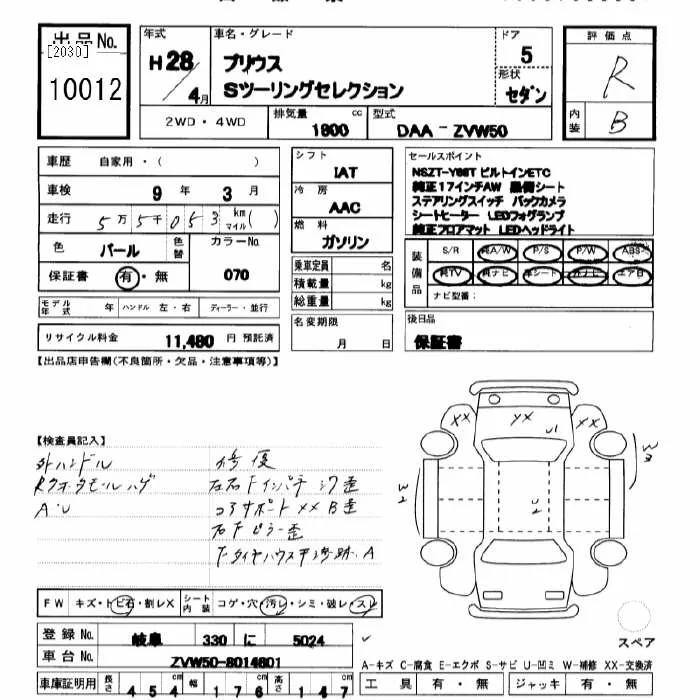 出品No.
[2030]
10012
年式
H28/4月
車名・グレード
プリウス
Sツーリングセレクション
ドア
5
形状
セダン
評価点
R
内装
B
2WD・4WD
排気量
1800 cc
型式
DAA-ZVW50
車歴 自家用・( )
車検 9年 3月
走行 5万5千053 km マイル( )
色 パール 色替 カラーNo. 070
保証書 有・無
モデル年式 年 ハンドル 左・右 ディーラー・並行
リサイクル料金 11,480円 預託済
シフト
IAT
冷房
AAC
燃料
ガソリン
乗車定員 名
積載量 kg
総重量 kg
名変期限
月 日
セールスポイント
NSZT-Y66T ビルトインETC
純正17インチAW 黒革シート
ステアリングスイッチ バックカメラ
シートヒーター LEDフォグランプ
純正フロアマット LEDヘッドライト
装備品
S/R 純A/W P/S P/W ABS
純TV 純ナビ 革シート エアB
ナビ型番:
後日品
保証書
【出品店申告欄(不良箇所・欠品・注意事項等)】
【検査員記入】
外ハンドル
A・U
修復
コアサポートXX B歪
右Fピラー歪
XX YX XX
U1
W2 U2 W3
FW キズ・トビ石・割レX シート内装 コゲ・穴・汚レ・シミ・破レ・スレ
登録No. 岐阜 330 に 5024
車台No. ZVW50-8014601
車庫証明用 長さ 454cm 幅 176cm 高さ 147cm
スペア
A-キズ C-腐食 E-エクボ S-サビ U-凹ミ W-補修 XX-交換済
工具 有・無 ジャッキ 有・無